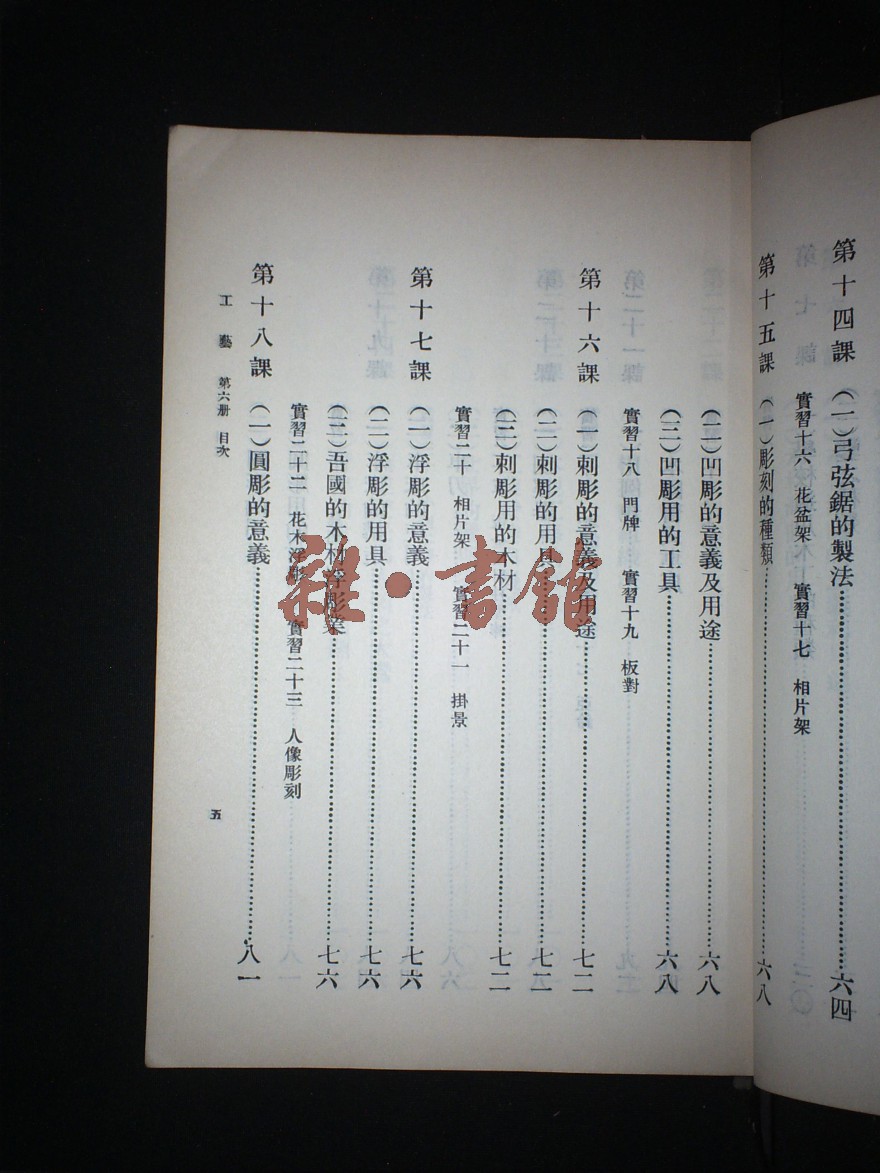 第十四課 (一)弓弦鋸的製法 六四
實習十六 花盆架 實習十七 相片架
第十五課 (一)彫刻的種類 六八
(二)凹彫的意義及用途 六八
(三)凹彫用的工具 六八
實習十八 門牌 實習十九 板對
第十六課 (一)刺彫的意義及用途 七二
(二)刺彫的用具 七二
(三)刺彫用的木材 七二
實習二十 相片架 實習二十一 掛景
第十七課 (一)浮彫的意義 七六
(二)浮彫的用具 七六
(三)吾國的木材浮彫業 七六
實習二十二 花木浮彫 實習二十三 人像彫刻
第十八課 (一)圓彫的意義 八一
工藝 第六册 目次 五
雜·書館